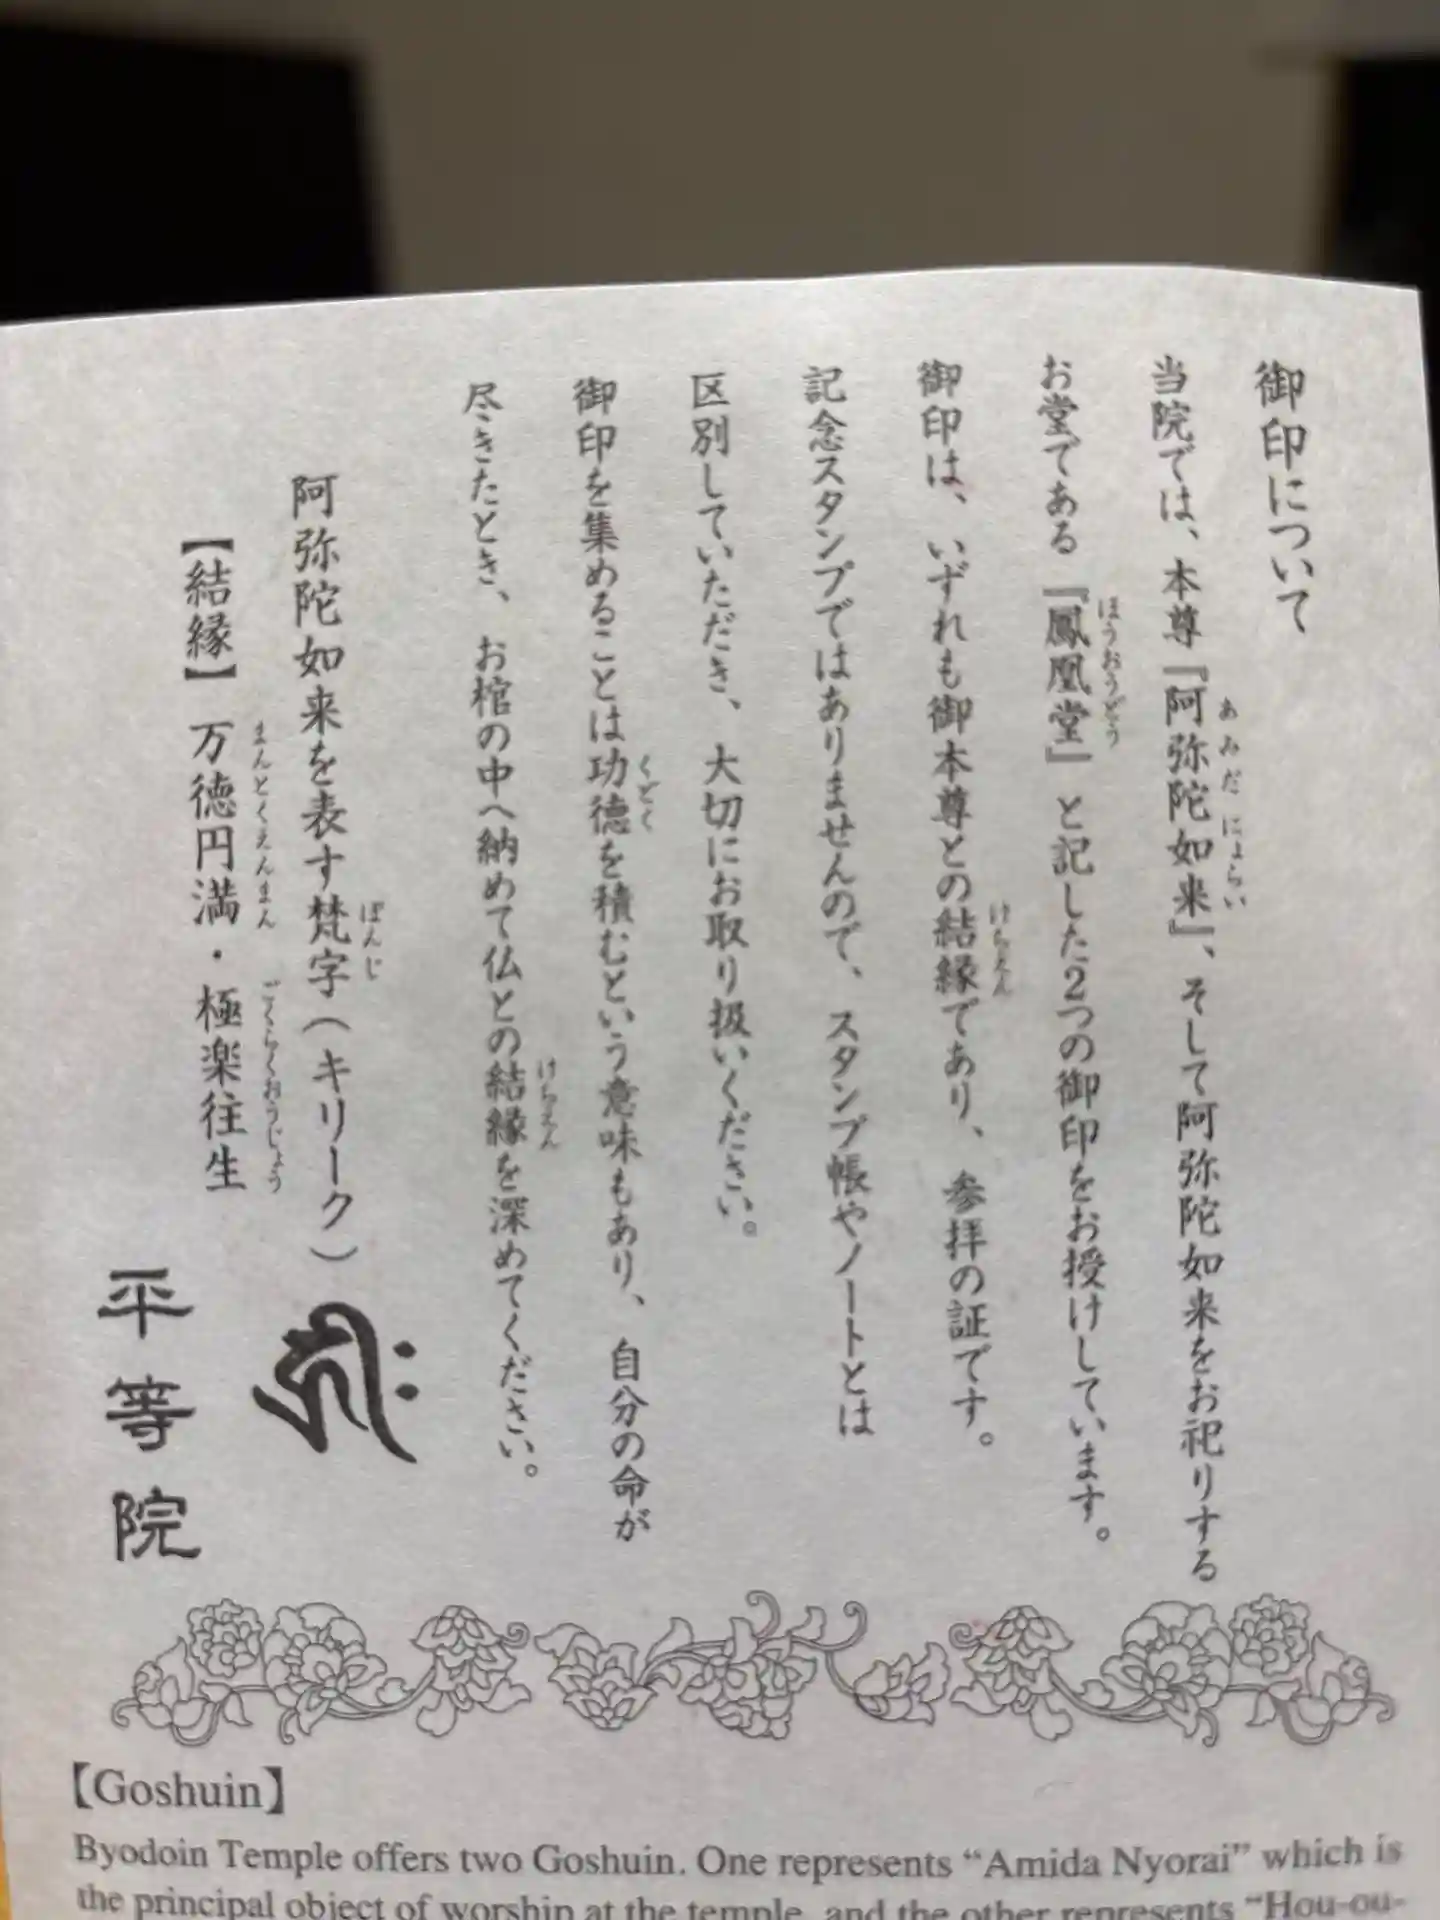 御印について
当院では、本尊『阿弥陀如来』、そして阿弥陀如来をお祀りする
あみだにょらい
お堂である『鳳凰堂』と記した2つの御印をお授けしています。
ほうおうどう
御印は、いずれも御本尊との結縁であり、参拝の証です。
けちえん
記念スタンプではありませんので、スタンプ帳やノートとは
区別していただき、大切にお取り扱いください。
御印を集めることは功徳を積むという意味もあり、自分の命が
くどく
尽きたとき、お棺の中へ納めて仏との結縁を深めてください。
けちえん
阿弥陀如来を表す梵字(キリーク)
ぼんじ
【結縁】万徳円満・極楽往生
まんとくえんまん ごくらくおうじょう
平等院
【Goshuin】
Byodoin Temple offers two Goshuin. One represents “Amida Nyorai” which is
the principal object of worship at the temple, and the other represents “Hou-ou-